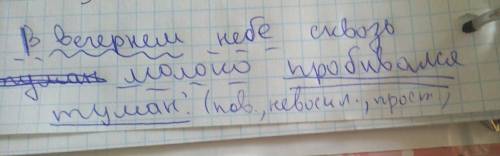 В вечернем небе сквозь
туман молоко пробивался
туман. (пов., невоскл., прост.)